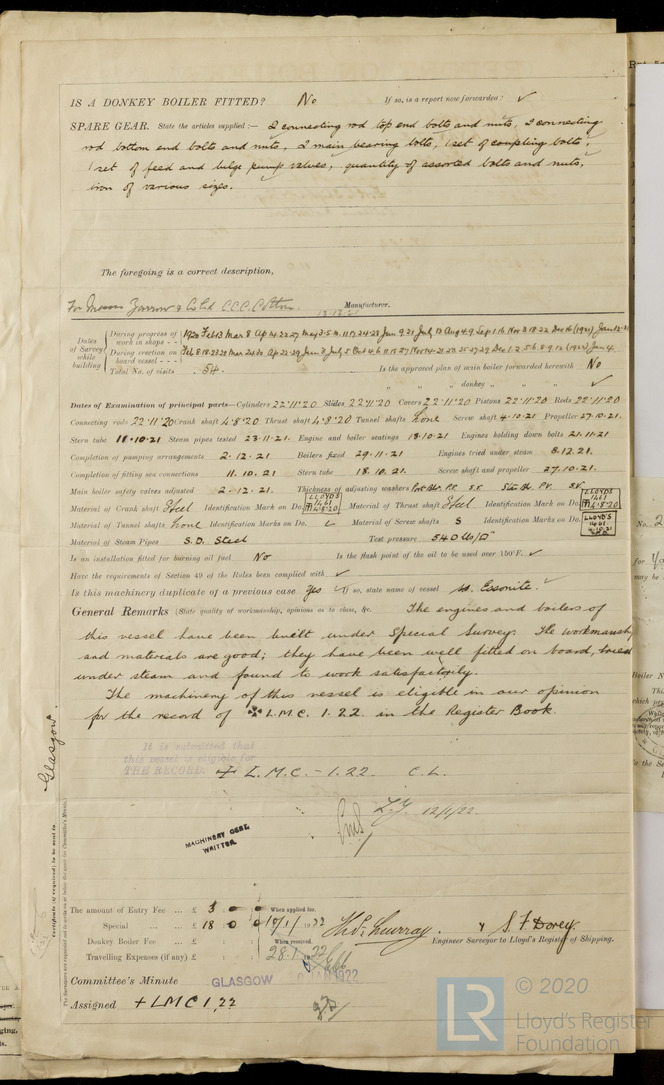 IS A DONKEY BOILER FITTED? No If so, is a report now forwarded: ✓
SPARE GEAR. State the articles supplied:— 2 connecting rod top end bolts and nuts, 2 connecting
rod bottom end bolts and nuts, 2 main bearing bolts, 1 set of coupling bolts,
1 set of feed and bilge pump valves, quantity of assorted bolts and nuts,
iron of various sizes.
The foregoing is a correct description,
For Messrs Yarrow & Co Ltd Manufacturer.
13-12-21
Dates of Survey while building
During progress of work in shops - - 1920 Feb 13 Mar 8 Ap 14.22.27 May 3.5.
During erection on board vessel - - -
Total No. of visits 54. Is the approved plan of main boiler forwarded herewith No
" " " donkey " " " ✓
Dates of Examination of principal parts—Cylinders 22·11·20 Slides 22·11·20 Covers 22·11·20 Pistons 22·11·20 Rods 22·11·20
Connecting rods 22·11·20 Crank shaft 4·8·20 Thrust shaft 4·8·20 Tunnel shafts None Screw shaft 4·10·21 Propeller 27·10·21.
Stern tube 11·10·21 Steam pipes tested 23·11·21. Engine and boiler seatings 18·10·21 Engines holding down bolts 21.11.21
Completion of pumping arrangements 2·12·21 Boilers fixed 29·11·21 Engines tried under steam 8.12.21.
Completion of fitting sea connections 11.10.21 Stern tube 18.10.21. Screw shaft and propeller 27.10.21.
Main boiler safety valves adjusted 2·12·21. Thickness of adjusting washers
Material of Crank shaft Steel Identification Mark on Do. LLOYDS 1461 4·8·20 Material of Thrust shaft Steel Identification Mark on Do. LLOYDS 1461 4·8·20
Material of Tunnel shafts None Identification Marks on Do. Material of Screw shafts S Identification Marks on Do. LLOYD'S 4·10·21
Material of Steam Pipes S.D. Steel Test pressure 540 lbs/□"
Is an installation fitted for burning oil fuel No Is the flash point of the oil to be used over 150°F. ✓
Have the requirements of Section 49 of the Rules been complied with ✓
Is this machinery duplicate of a previous case Yes If so, state name of vessel Essonite.
General Remarks (State quality of workmanship, opinions as to class, &c. The engines and boilers of
this vessel have been built under Special Survey. The workmanship
and materials are good; they have been well fitted on board, tried
under steam and found to work satisfactorily.
The machinery of this vessel is eligible in our opinion
for the record of ✠ L.M.C. 1.22. in the Register Book.
It is submitted that
this vessel is eligible for
THE RECORD. + L.M.C. - 1.22. C.L.
12/1/22.
MACHINERY CERT.
WRITTEN.
Glasgow.
Certificate (if required) to be sent to
The Surveyors are requested not to write on or below the space for Committee's Minute.
The amount of Entry Fee ... £ 3 : When applied for,
Special ... £ 18 : 0 : 0
Donkey Boiler Fee ... £ : : When received,
Travelling Expenses (if any) £ : :
Thos Murray. & S. F. Dorey
Engineer Surveyor to Lloyd's Register of Shipping.
Committee's Minute GLASGOW
Assigned + LMC 1,22
© 2020
LR
Lloyd's Register
Foundation